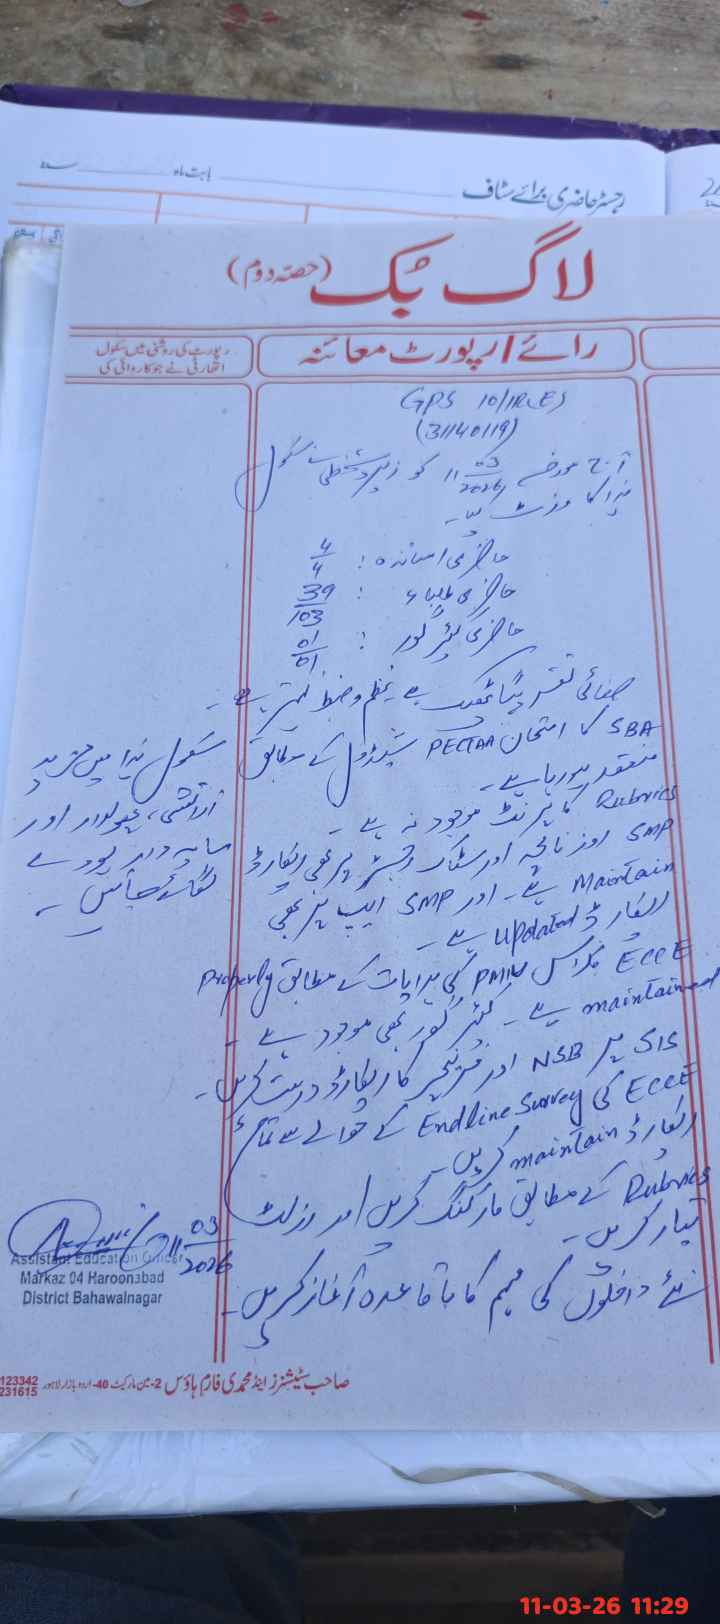 رجسٹر حاضری برائے سٹاف
بابت ماہ سنہ
لاگ بُک (حصہ دوم)
رائے / رپورٹ معائنہ
رپورٹ کی روشنی میں سکول
اتھارٹی نے جو کاروائی کی
GPS 10/1R(E)
(31140119)
آج مورخہ 11 03 2026 کو زیر دستخطی نے سکول
ہذا کا وزٹ کیا۔
حاضری اساتذہ : 4/4
حاضری طلباء : 39/103
حاضری کیئر گور : 01/01
صفائی ٹھیک ہے نظم و ضبط بہتر ہے۔
SBA کا امتحان PECTAA شیڈول کے مطابق
منعقد ہو رہا ہے۔
Rubrics کا پرنٹ موجود نہ ہے۔
SMP روزنامچہ اور سٹاک رجسٹر پر بھی ریکارڈ
Maintain ہے۔ اور SMP ایپ پر بھی
ریکارڈ Updated ہے۔
ECCE کلاس PMIU کی ہدایات کے مطابق Properly
maintained ہے۔ کیئر گور بھی موجود ہے۔
SIS پر NSB اور فرنیچر کا ریکارڈ درست کریں۔
ECCE کی Endline Survey کے حوالے سے تمام
ریکارڈ maintain کریں۔
Rubrics کے مطابق مارکنگ کریں اور رزلٹ
تیار کریں۔
نئے داخلوں کی مہم کا باقاعدہ آغاز کریں۔
سکول ہذا میں مزید
آرائشی، پھولدار اور
سایہ دار پودے
لگائے جائیں۔
11 03 2026
Assistant Education Officer
Markaz 04 Haroonabad
District Bahawalnagar
صاحب سٹیشنرز اینڈ محمدی فارم ہاؤس 2-مین مارکیٹ 40-اردو بازار لاہور
123342
231615
11-03-26 11:29